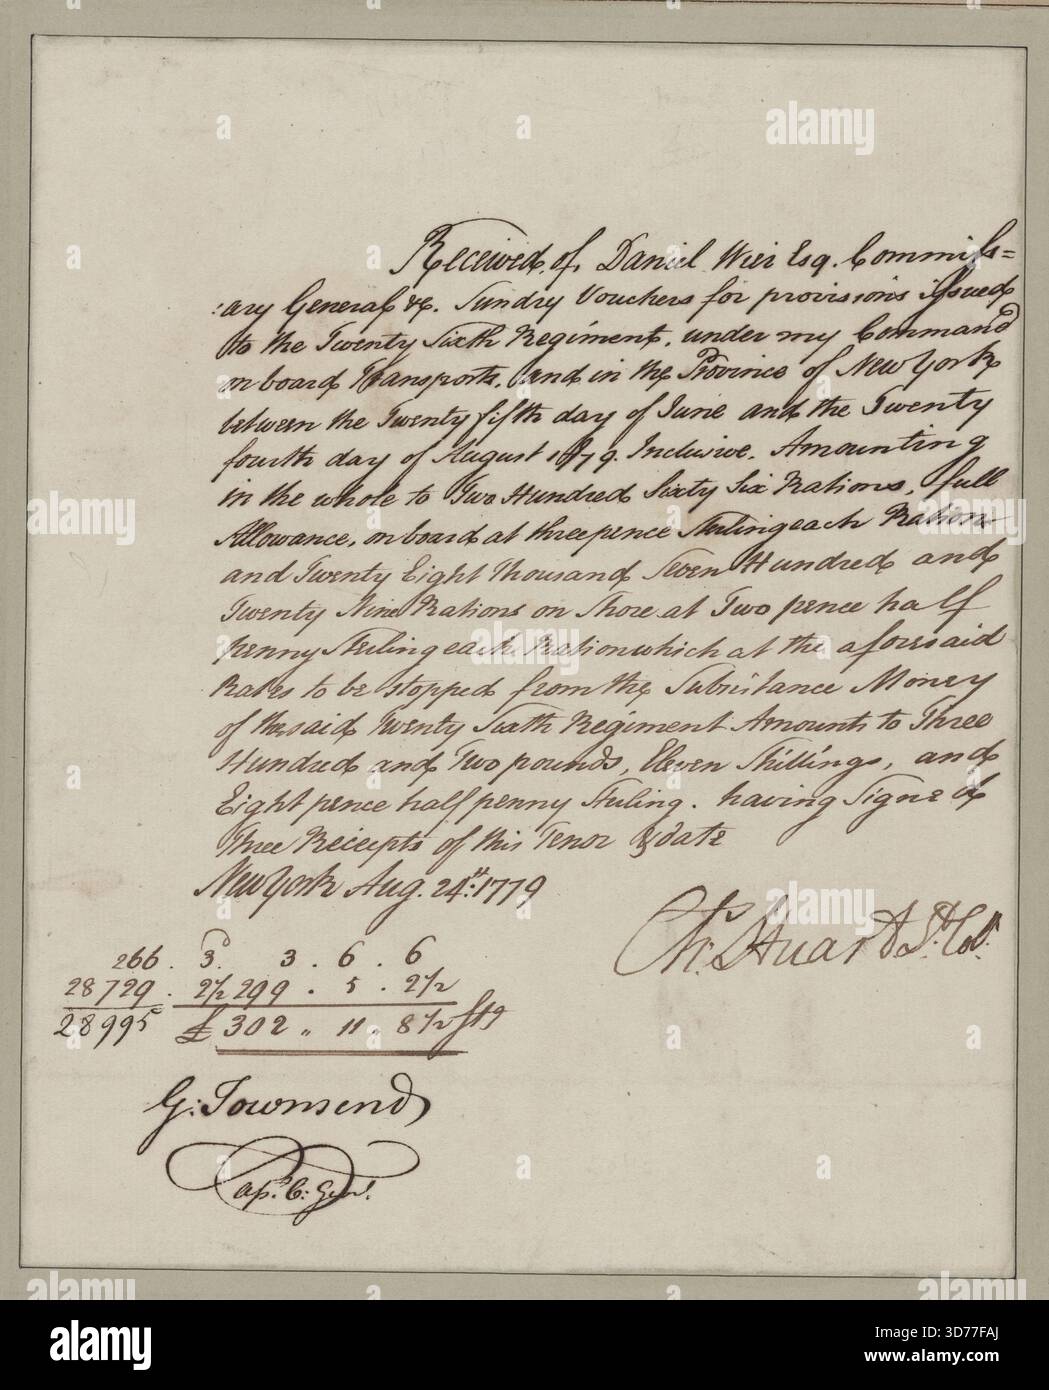 Received of Daniel Wier Esq. Commiss=
:ary General &c. Sundry Vouchers for provisions issued
to the Twenty Sixth Regiment, under my Command
on board Transports, and in the Province of New York
between the Twenty fifth day of June and the Twenty
fourth day of August 1779. Inclusive. Amounting
in the whole to Two Hundred Sixty Six Rations, full
Allowance, on board at threepence Sterling each Ration
and Twenty Eight Thousand Seven Hundred and
Twenty Nine Rations on Shore at Two pence half
penny Sterling each Ration which at the aforesaid
Rates to be stopped from the Subsistance Money
of the said Twenty Sixth Regiment Amounts to Three
Hundred and Two pounds, Eleven Shillings, and
Eight pence half penny Sterling. having Signed
Three Receipts of this Tenor & date
New York Aug. 24th: 1779
Chs. Stuart Lt. Col.
266 . 3 3 . 6 . 6
28729 . 2½ 299 . 5 . 2½
28995 £ 302 " 11 . 8½ Stg
G: Townsend
C: Genl.
alamy
a
alamy
Image ID: 3D77FAJ
www.alamy.com